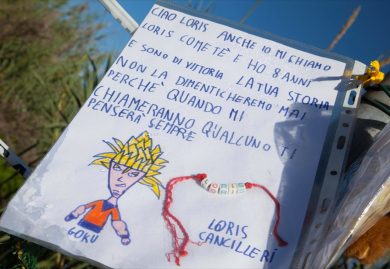 CIAO LORIS ANCHE IO MI CHIAMO
LORIS COME TE E HO 8 ANNI
E SONO DI VITTORIA LA TUA STORIA
NON LA DIMENTICHEREMO MAI
PERCHÈ QUANDO MI
CHIAMERANNO QUALCUNO TI
PENSERÀ SEMPRE
GOKU
LORIS
CANCILLERI